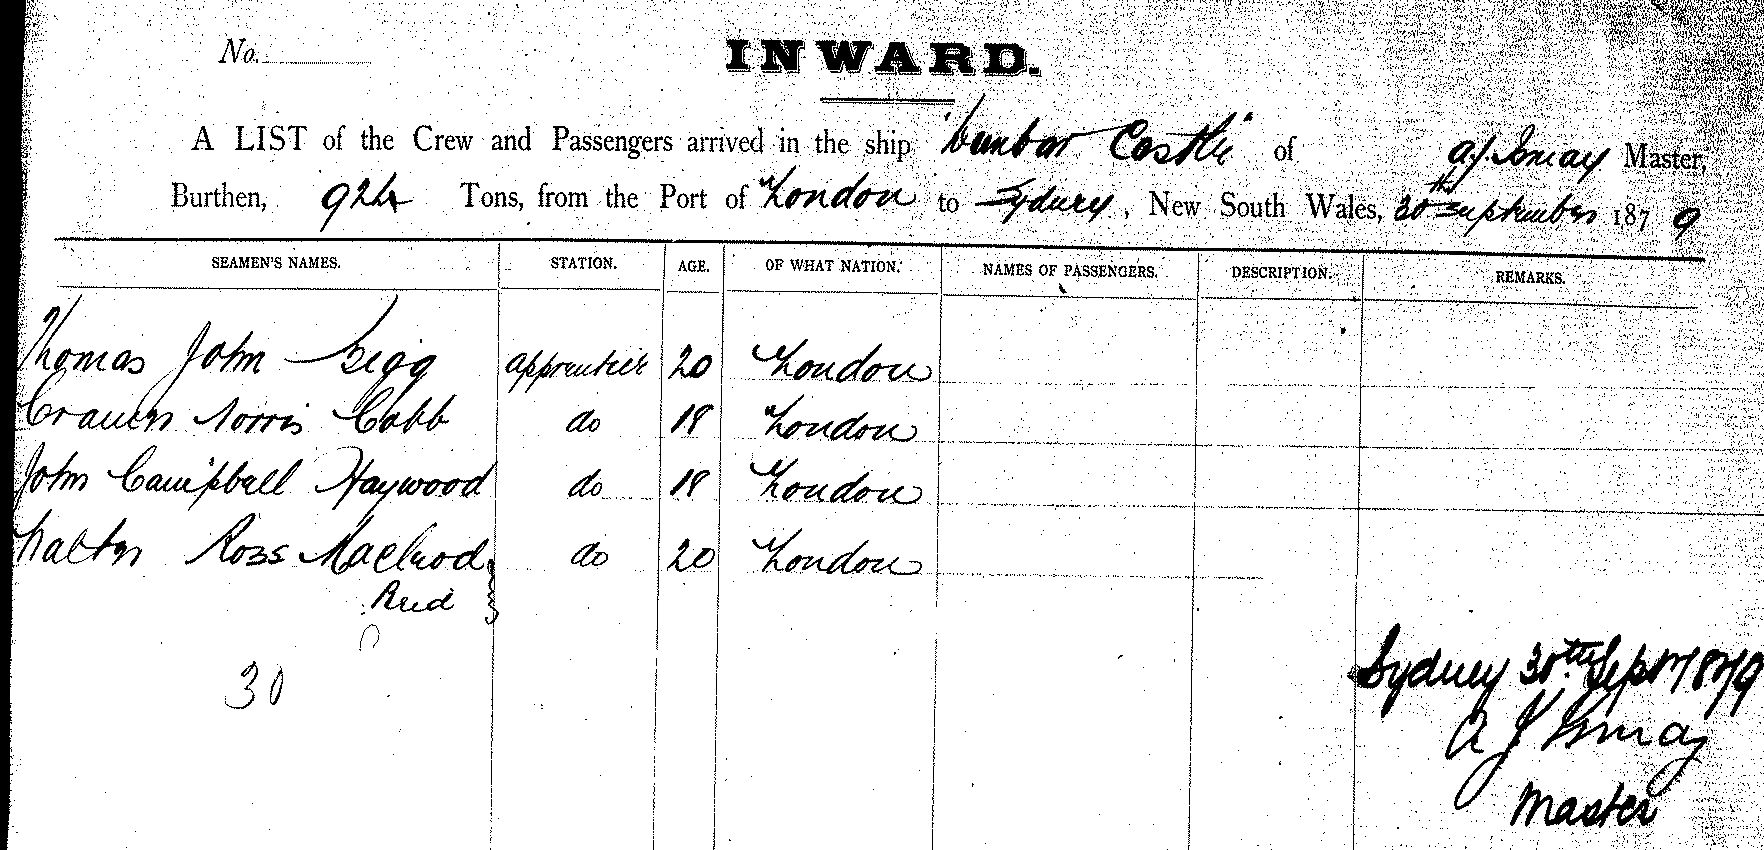 No.
INWARD.
A LIST of the Crew and Passengers arrived in the ship "Dunbar Castle" of A. J. Ismay Master,
Burthen, 924 Tons, from the Port of London to Sydney, New South Wales, 30th September 1879
SEAMEN'S NAMES. STATION. AGE. OF WHAT NATION. NAMES OF PASSENGERS. DESCRIPTION. REMARKS.
Thomas John apprentice 20 London
Craven Norris Cobb do 18 London
John Campbell Haywood do 18 London
Walter Ross Macleod do 20 London
Reid
30
Sydney 30th Sept 1879
A J Ismay
Master